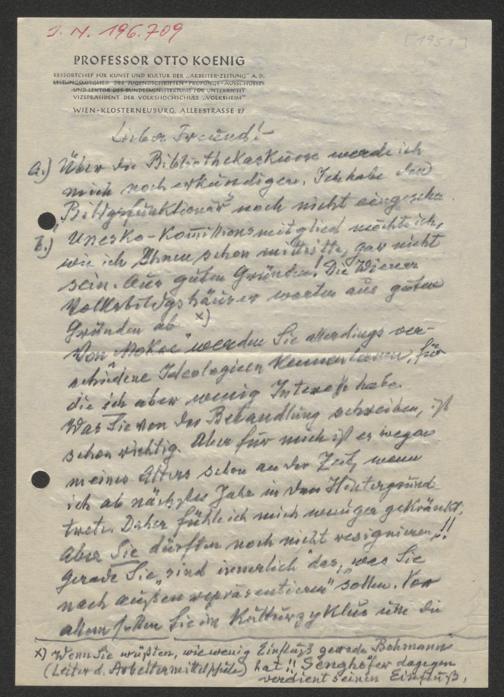 J. N. 196.709
[1951]
PROFESSOR OTTO KOENIG
RESSORTCHEF FÜR KUNST UND KULTUR DER „ARBEITER-ZEITUNG" A. D.
VIZEPRÄSIDENT DER VOLKSHOCHSCHULE „VOLKSHEIM"
WIEN-KLOSTERNEUBURG, ALLEESTRASSE 27
Lieber Freund!
a.) Über die Bibliothekarskurse werde ich
mich noch erkundigen. Ich habe den
noch nicht eingesehn.
b.) Unesko-Komissionsmitglied möchte ich,
wie ich Ihnen schon mitteilte, gar nicht
sein. Aus guten Gründen. Die Wiener
Volksbildgshäuser warten aus guten
Gründen ab x)
Von werden Sie allerdings ver-
schiedene Ideologieen kennenlernen, für
die ich aber wenig Interesse habe.
Was Sie von der Behandlung schreiben, ist
schon richtig. Aber für mich ist es wegen
meines Alters schon an der Zeit, wenn
ich ab nächstes Jahr in den Hintergrund
trete. Daher fühle ich mich weniger gekränkt,
aber Sie dürften noch nicht resignieren!!
Gerade Sie „sind innerlich" das, „was Sie
nach außen repräsentieren" sollen. Vor
allem sollen Sie im Kulturzyklus um die
x) Wenn Sie wüßten, wie wenig Einfluß gerade
(Leiter d. ) hat!! Senghofer dagegen
verdient seinen Einfluß.